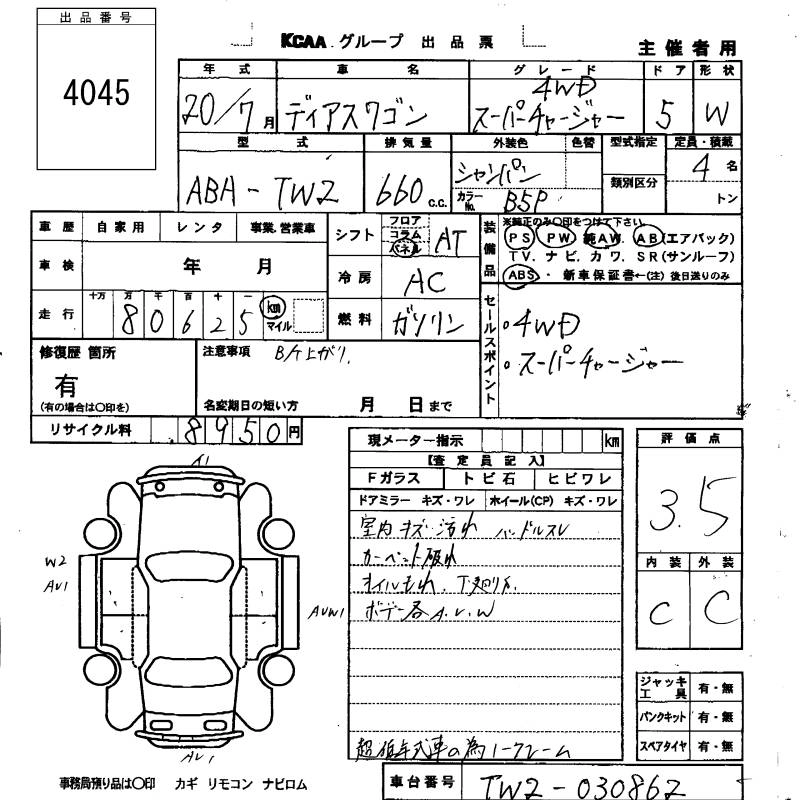 出品番号
4045
KCAA グループ 出品票
主催者用
年式 車名 グレード ドア 形状
20/7月 ディアスワゴン 4WD スーパーチャージャー 5 W
型式 排気量 外装色 色替 型式指定 定員・積載
ABA-TW2 660 c.c. シャンパン 4名
カラーNo. B5P 類別区分 トン
車歴 自家用 レンタ 事業.営業車
シフト フロア コラム パネル AT
装備品 ※純正のみ○印をつけて下さい
PS PW 純AW. AB(エアバック)
TV. ナビ. カワ. SR(サンルーフ)
ABS・ 新車保証書←(注)後日送りのみ
車検 年 月
冷房 AC
走行 十万 万 千 百 十 一 80625 km マイル
燃料 ガソリン
セールスポイント
・4WD
・スーパーチャージャー
修復歴 箇所
有
(有の場合は○印を)
注意事項 B/T上がり.
名変期日の短い方 月 日まで
リサイクル料 8950円
現メーター指示 km
【査定員記入】
Fガラス トビ石 ヒビワレ
ドアミラー キズ・ワレ ホイール(CP) キズ・ワレ
室内キズ・汚れ ハンドルスレ
カーペット破れ
オイルもれ. 下廻りサ.
ボデー各A.U.W
超低年式車の為ノークレーム
評価点
3.5
内装 外装
C C
W2
AU1
AUW1
AU1
ジャッキ工具 有・無
パンクキット 有・無
スペアタイヤ 有・無
事務局預り品は○印 カギ リモコン ナビロム
車台番号 TW2-030862